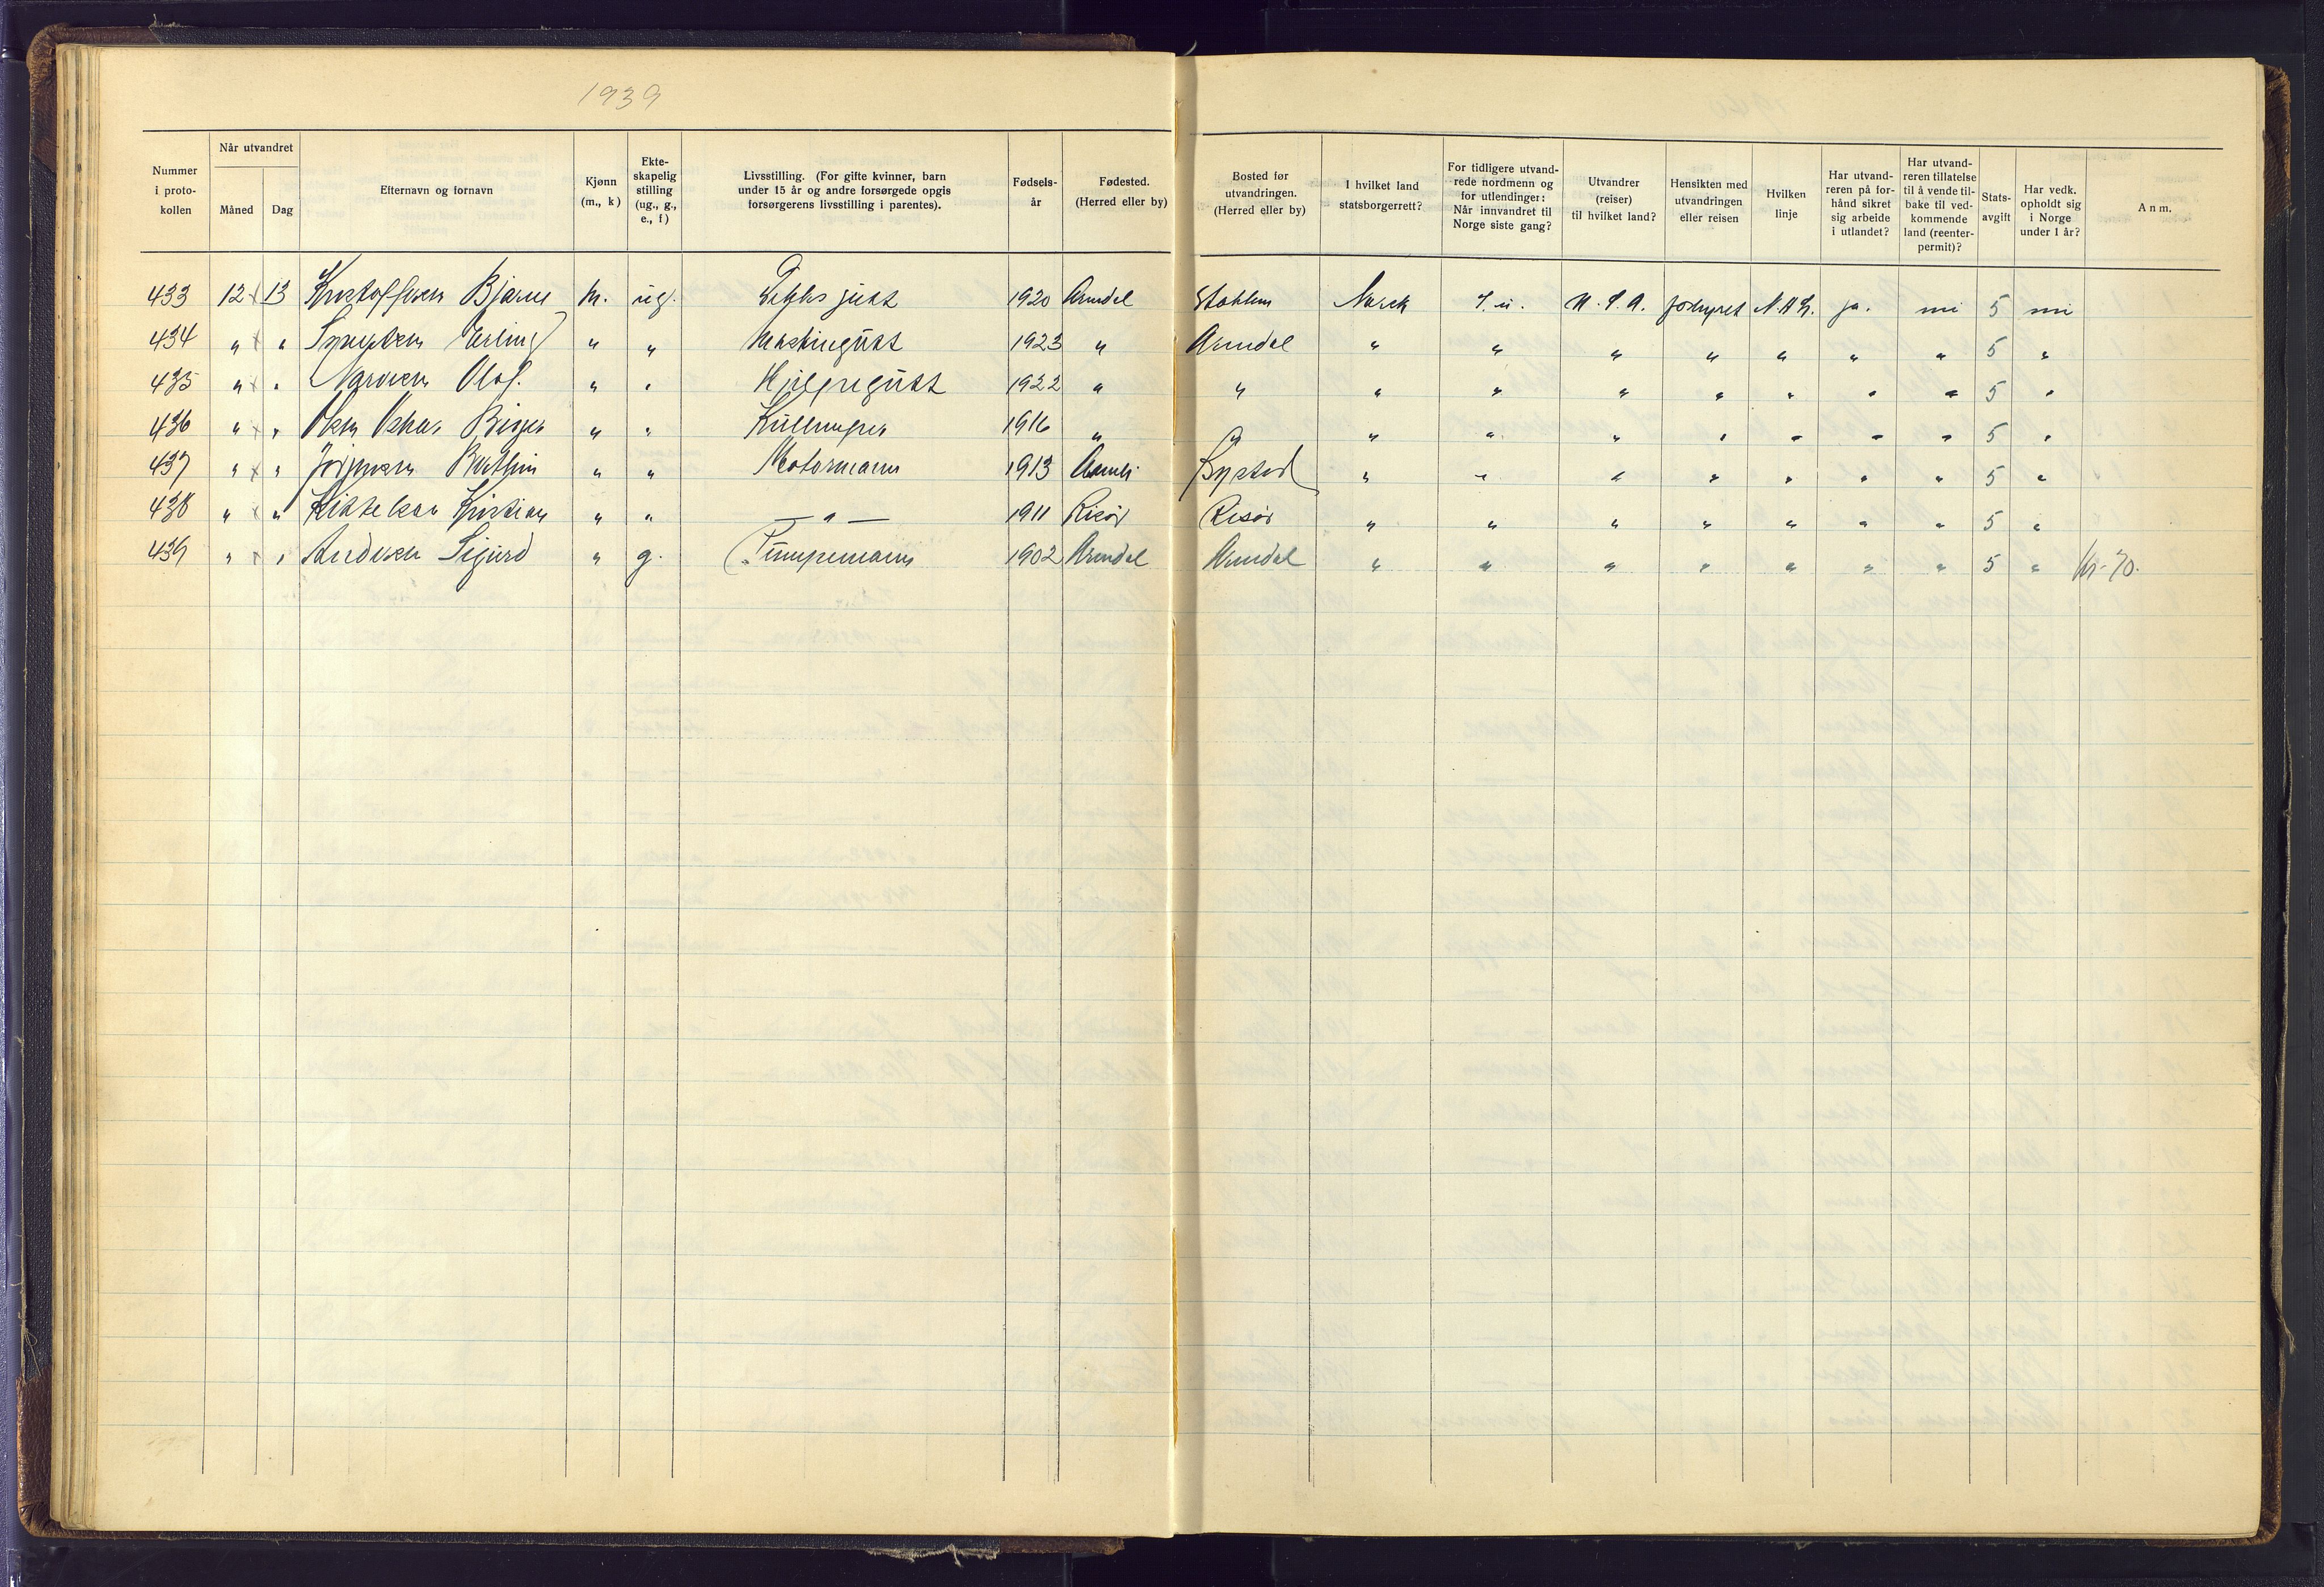 1939
Nummer i proto-kollen | Når utvandret Måned | Dag | Efternavn og fornavn | Kjønn (m., k) | Ekte-skapelig stilling (ug., g., e., f) | Livsstilling. (For gifte kvinner, barn under 15 år og andre forsørgede opgis forsørgerens livsstilling i parentes). | Fødsels-år | Fødested. (Herred eller by) | Bosted før utvandringen. (Herred eller by) | I hvilket land statsborgerrett? | For tidligere utvand-rede nordmenn og for utlendinger: Når innvandret til Norge siste gang? | Utvandrer (reiser) til hvilket land? | Hensikten med utvandringen eller reisen | Hvilken linje | Har utvand-reren på for-hånd sikret sig arbeide i utlandet? | Har utvand-reren tillatelse til å vende til-bake til ved-kommende land (reenter-permit)? | Stats-avgift | Har vedk. opholdt sig i Norge under 1 år? | Anm.
433 12 13 Kristoffersen Bjarne m. ug. Dekksgutt 1920 Arendal Norsk U.S.A. forhyret N.A.L. ja. nei 5 nei
434 " " Erling " " Maskingutt 1923 " Arendal " " " " " " " 5 "
435 " " Olaf. " " 1922 " " " " " " " " " 5 "
436 " " Olsen Oskar Birger " " Kullemper 1916 " " " " " " " " " 5 "
437 " " " " Motormann 1913 Aamli " " " " " " " 5 "
438 " " Kittelsen Kristian " " — " — 1911 Risør Risør " " " " " " " 5 "
439 " " Andersen Sigurd " g. Pumpemann 1902 Arendal Arendal " " " " " " " 5 " Kr. 70.